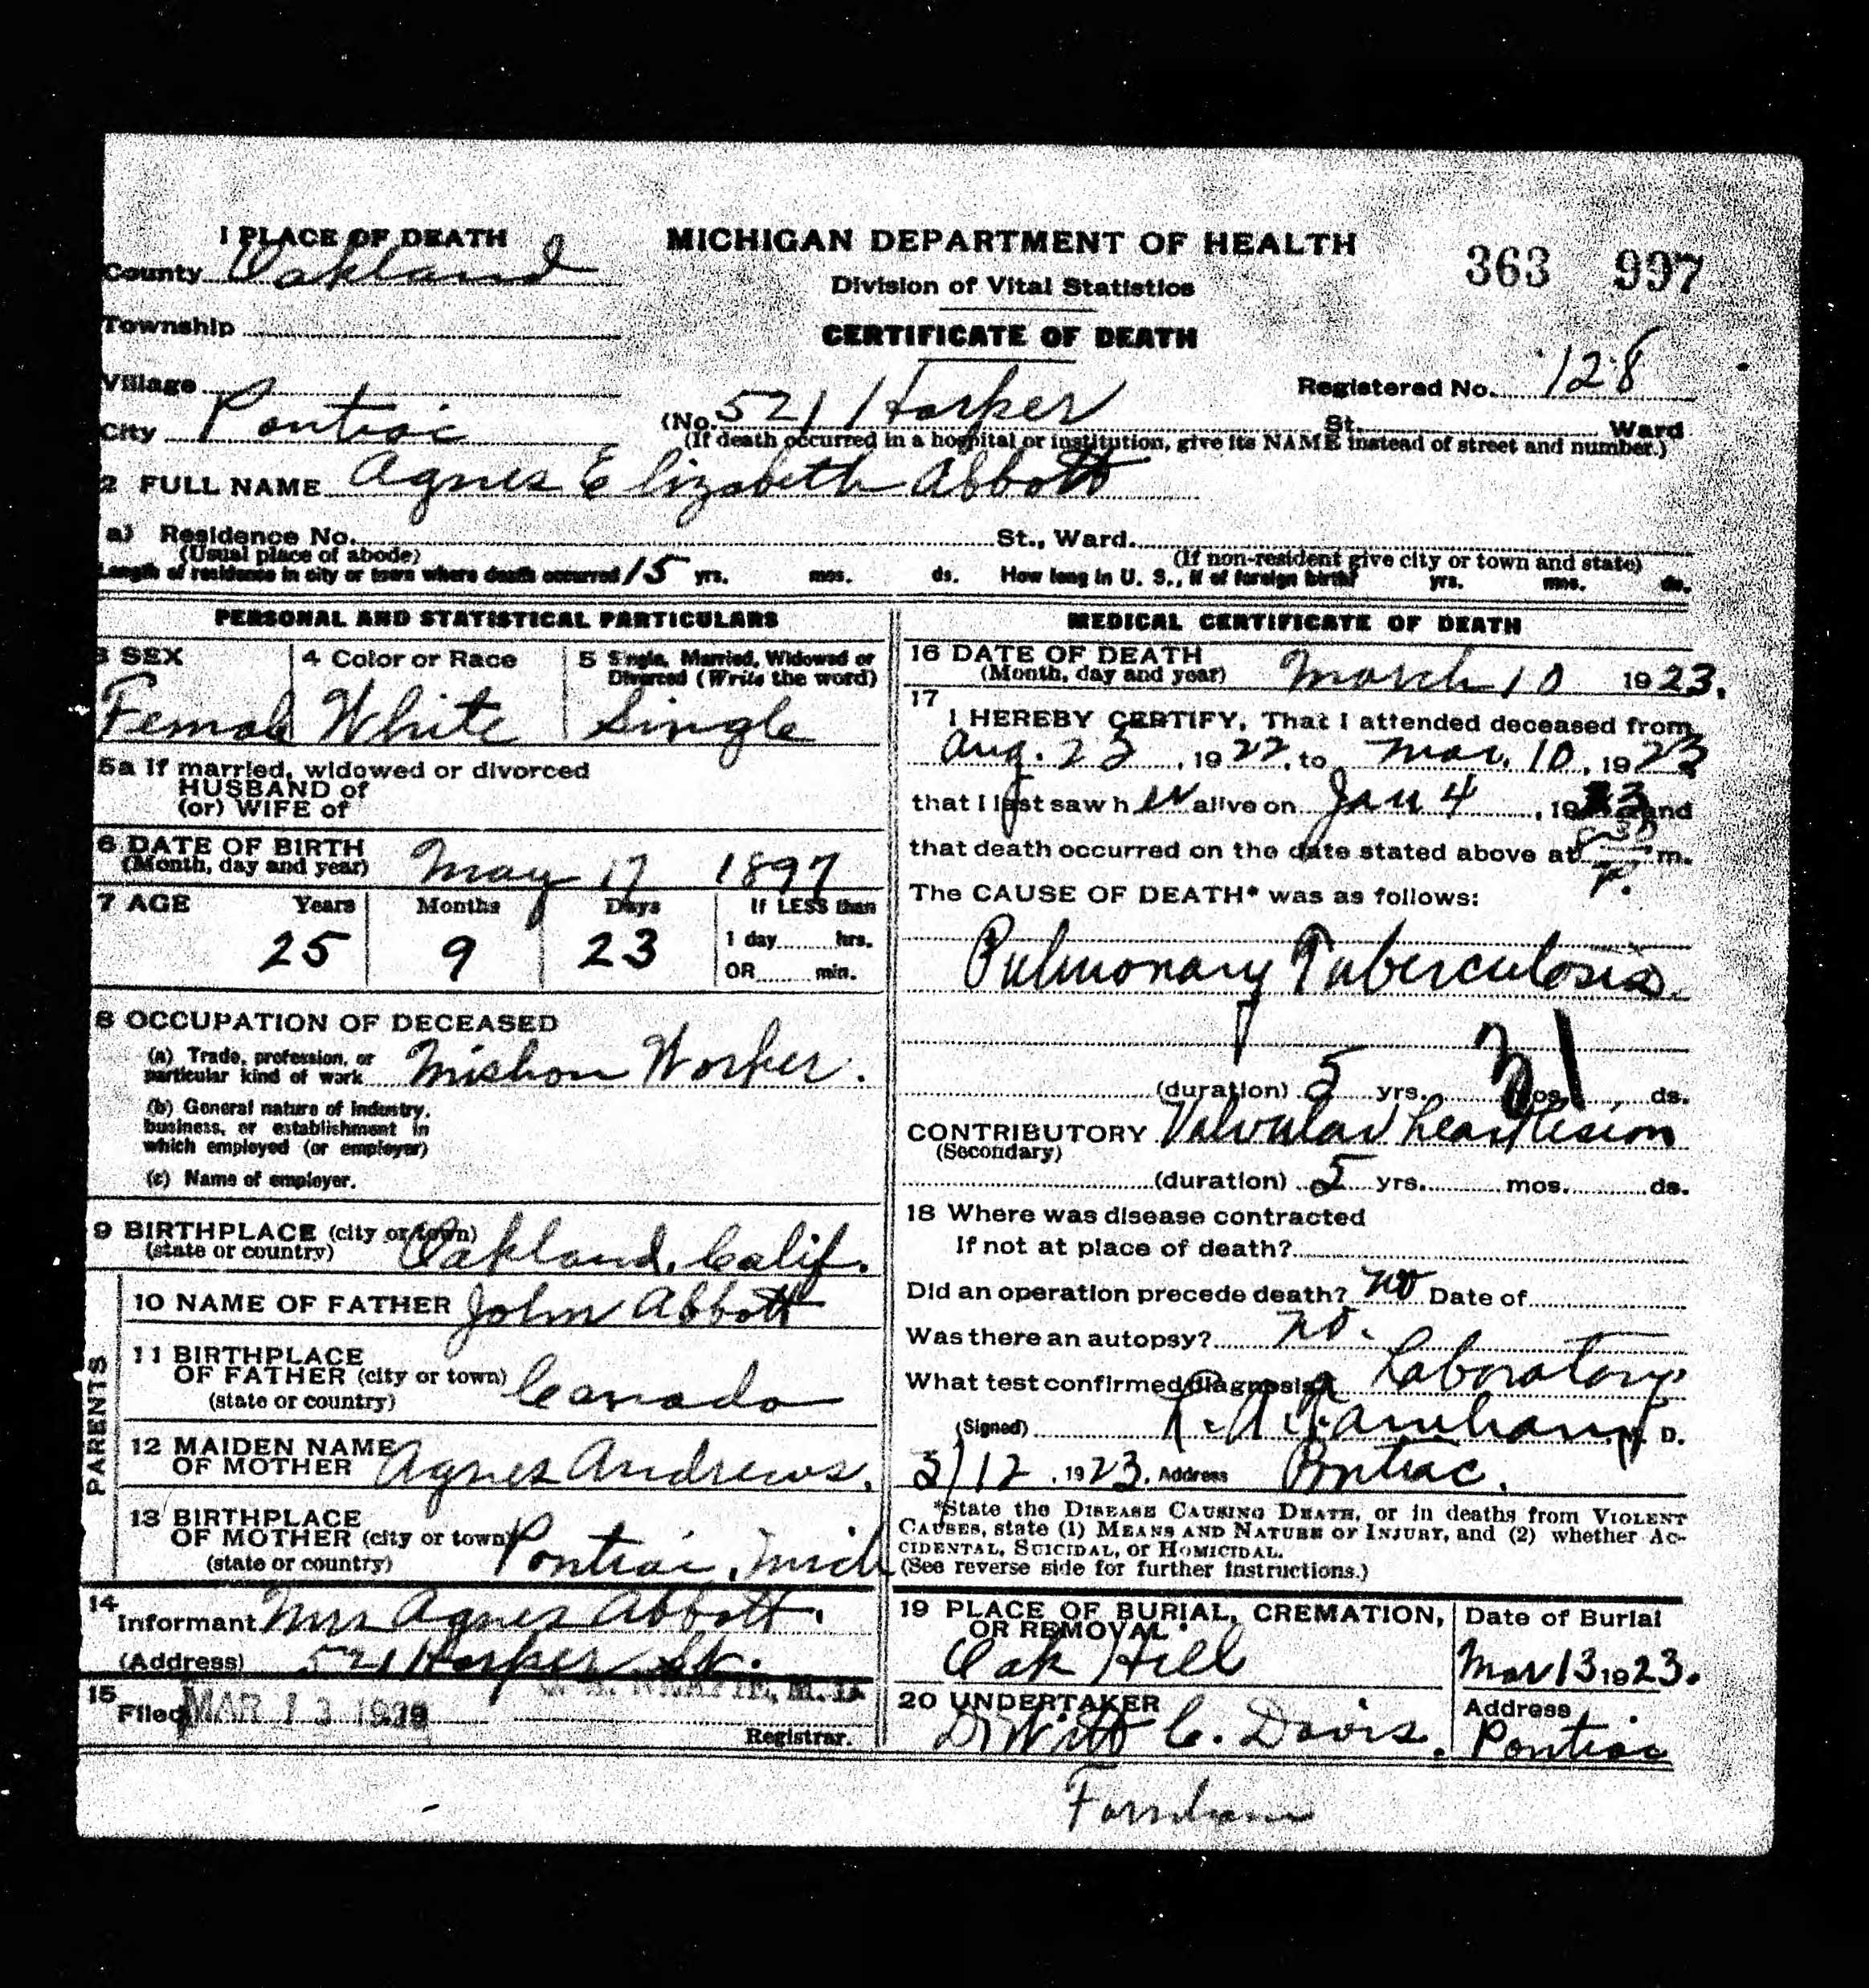 1 PLACE OF DEATH
County Oakland
Township
Village
City Pontiac
MICHIGAN DEPARTMENT OF HEALTH
Division of Vital Statistics
CERTIFICATE OF DEATH
363 997
Registered No. 128
(No. 521 Harper St. Ward
(If death occurred in a hospital or institution, give its NAME instead of street and number.)
2 FULL NAME Agnes Elizabeth Abbott
a) Residence No. St., Ward.
(Usual place of abode) (If non-resident give city or town and state)
Length of residence in city or town where death occurred 15 yrs. mos. ds. How long in U. S., if of foreign birth? yrs. mos. ds.
PERSONAL AND STATISTICAL PARTICULARS
3 SEX 4 Color or Race 5 Single, Married, Widowed or
Divorced (Write the word)
Female White Single
5a If married, widowed or divorced
HUSBAND of
(or) WIFE of
6 DATE OF BIRTH
(Month, day and year) May 17 1897
7 AGE Years Months Days If LESS than
25 9 23 1 day hrs.
OR min.
8 OCCUPATION OF DECEASED
(a) Trade, profession, or
particular kind of work Mishon Worker.
(b) General nature of industry,
business, or establishment in
which employed (or employer)
(c) Name of employer.
9 BIRTHPLACE (city or town)
(state or country) Oakland, Calif.
PARENTS
10 NAME OF FATHER John Abbott
11 BIRTHPLACE
OF FATHER (city or town)
(state or country) Canada
12 MAIDEN NAME
OF MOTHER Agnes Andrews.
13 BIRTHPLACE
OF MOTHER (city or town)
(state or country) Pontiac, Mich
14
Informant Mrs Agnes Abbott.
(Address) 521 Harper St.
15
Filed MAR 13 M.D.
Registrar.
MEDICAL CERTIFICATE OF DEATH
16 DATE OF DEATH
(Month, day and year) March 10 1923.
17
I HEREBY CERTIFY, That I attended deceased from
Aug. 22, 1922, to Mar. 10, 1923
that I last saw her alive on Jan 4, 1923 and
that death occurred on the date stated above at P. m.
The CAUSE OF DEATH* was as follows:
Pulmonary Tuberculosis.
(duration) 5 yrs. mos. ds.
31
CONTRIBUTORY Valvular heart lesion
(Secondary)
(duration) 5 yrs. mos. ds.
18 Where was disease contracted
If not at place of death?
Did an operation precede death? no Date of
Was there an autopsy? no.
What test confirmed diagnosis? Laboratory
(Signed) M. D.
3/12, 1923. Address Pontiac.
*State the DISEASE CAUSING DEATH, or in deaths from VIOLENT
CAUSES, state (1) MEANS AND NATURE OF INJURY, and (2) whether AC-
CIDENTAL, SUICIDAL, or HOMICIDAL.
(See reverse side for further instructions.)
19 PLACE OF BURIAL, CREMATION,
OR REMOVAL
Oak Hill
Date of Burial
Mar 13 1923.
20 UNDERTAKER
DWitt C. Davis.
Address
Pontiac
Farnham